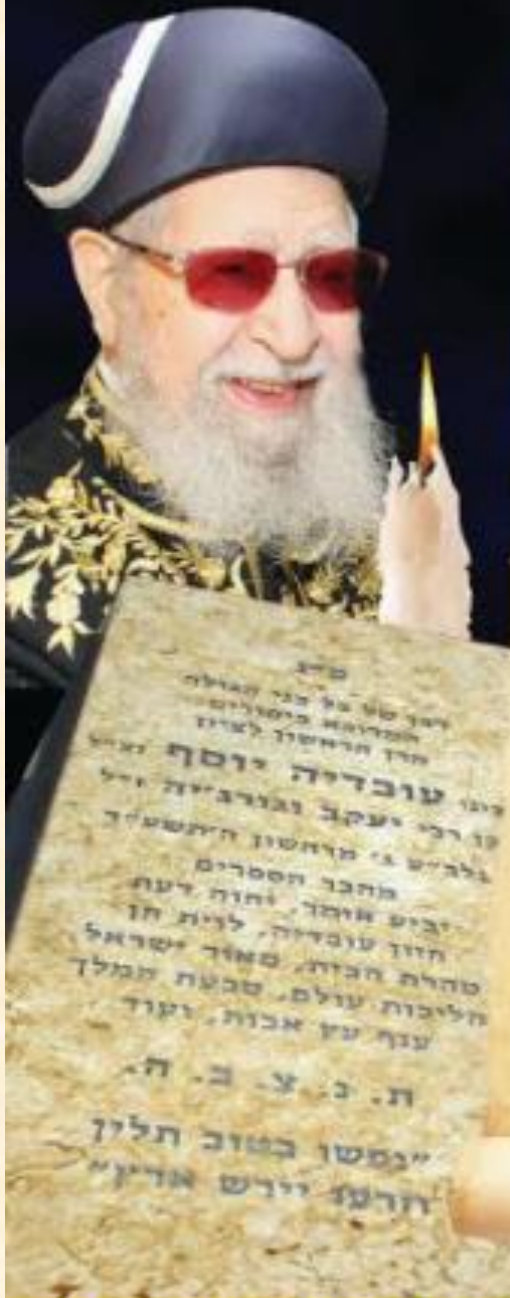 פ״נ
רבן של כל בני הגולה
מרן הראשון לציון
רבינו עובדיה יוסף זצ״ל
בן רבי יעקב וגורג׳יה ז״ל
נלב״ע ג׳ מרחשון ה׳תשע״ד
מחבר הספרים
יביע אומר, יחוה דעת
חזון עובדיה, לוית חן
טהרת הבית, מאור ישראל
הליכות עולם, טבעת המלך
ענף עץ אבות, ועוד
ת. נ. צ. ב. ה.
״נפשו בטוב תלין
וזרעו יירש ארץ״